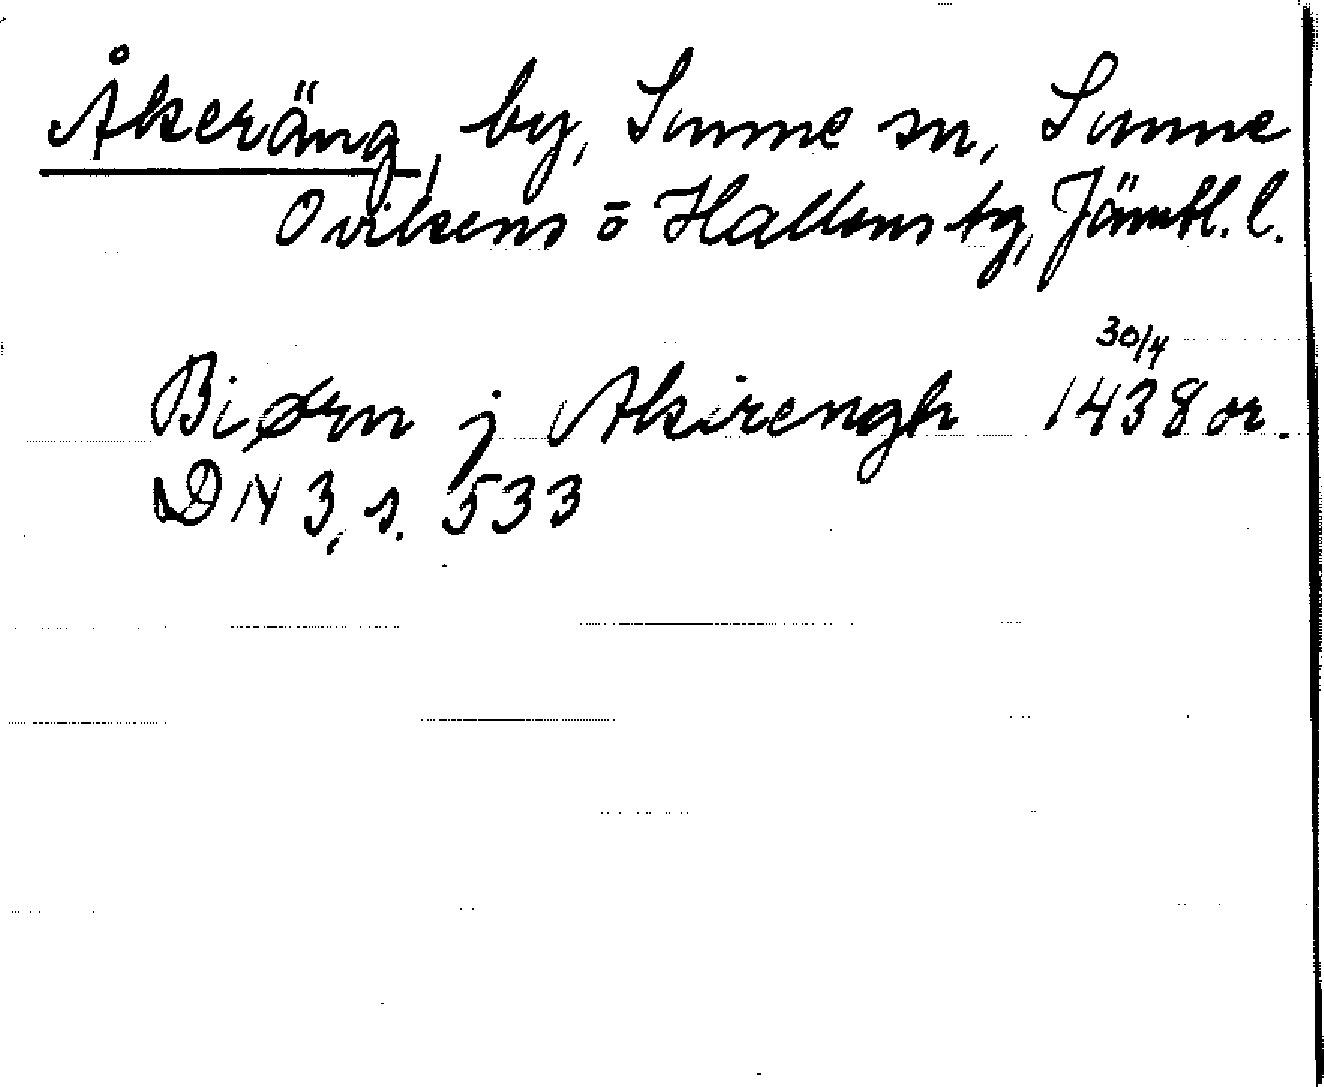 Åkeräng, by, Sunne sn, Sunne
Ovikens o Hallens tg, Jämtl. l.
30/4
Biørn j Akirengh 1438 or.
DN 3, s. 533